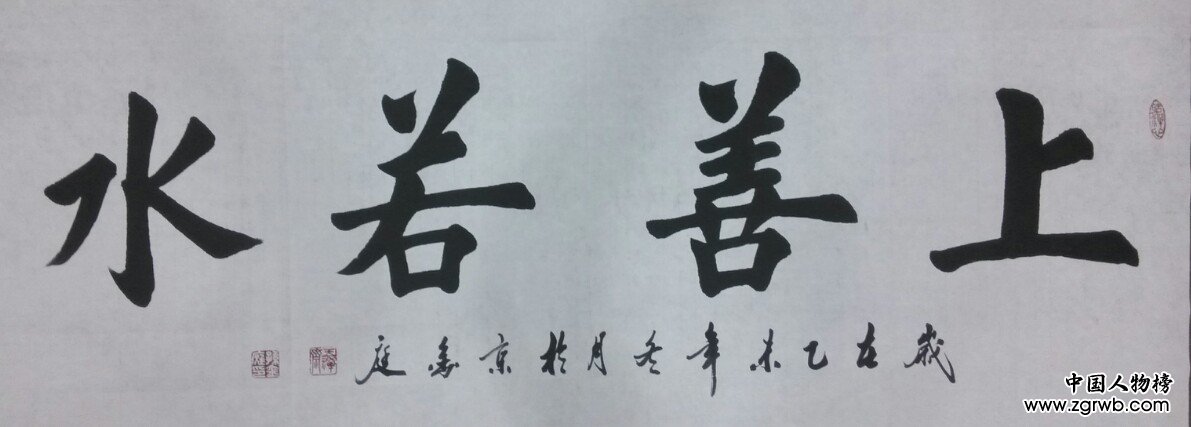 上善若水
歲在乙未年冬月於京魯庭
中国人物榜
www.zgrwb.com